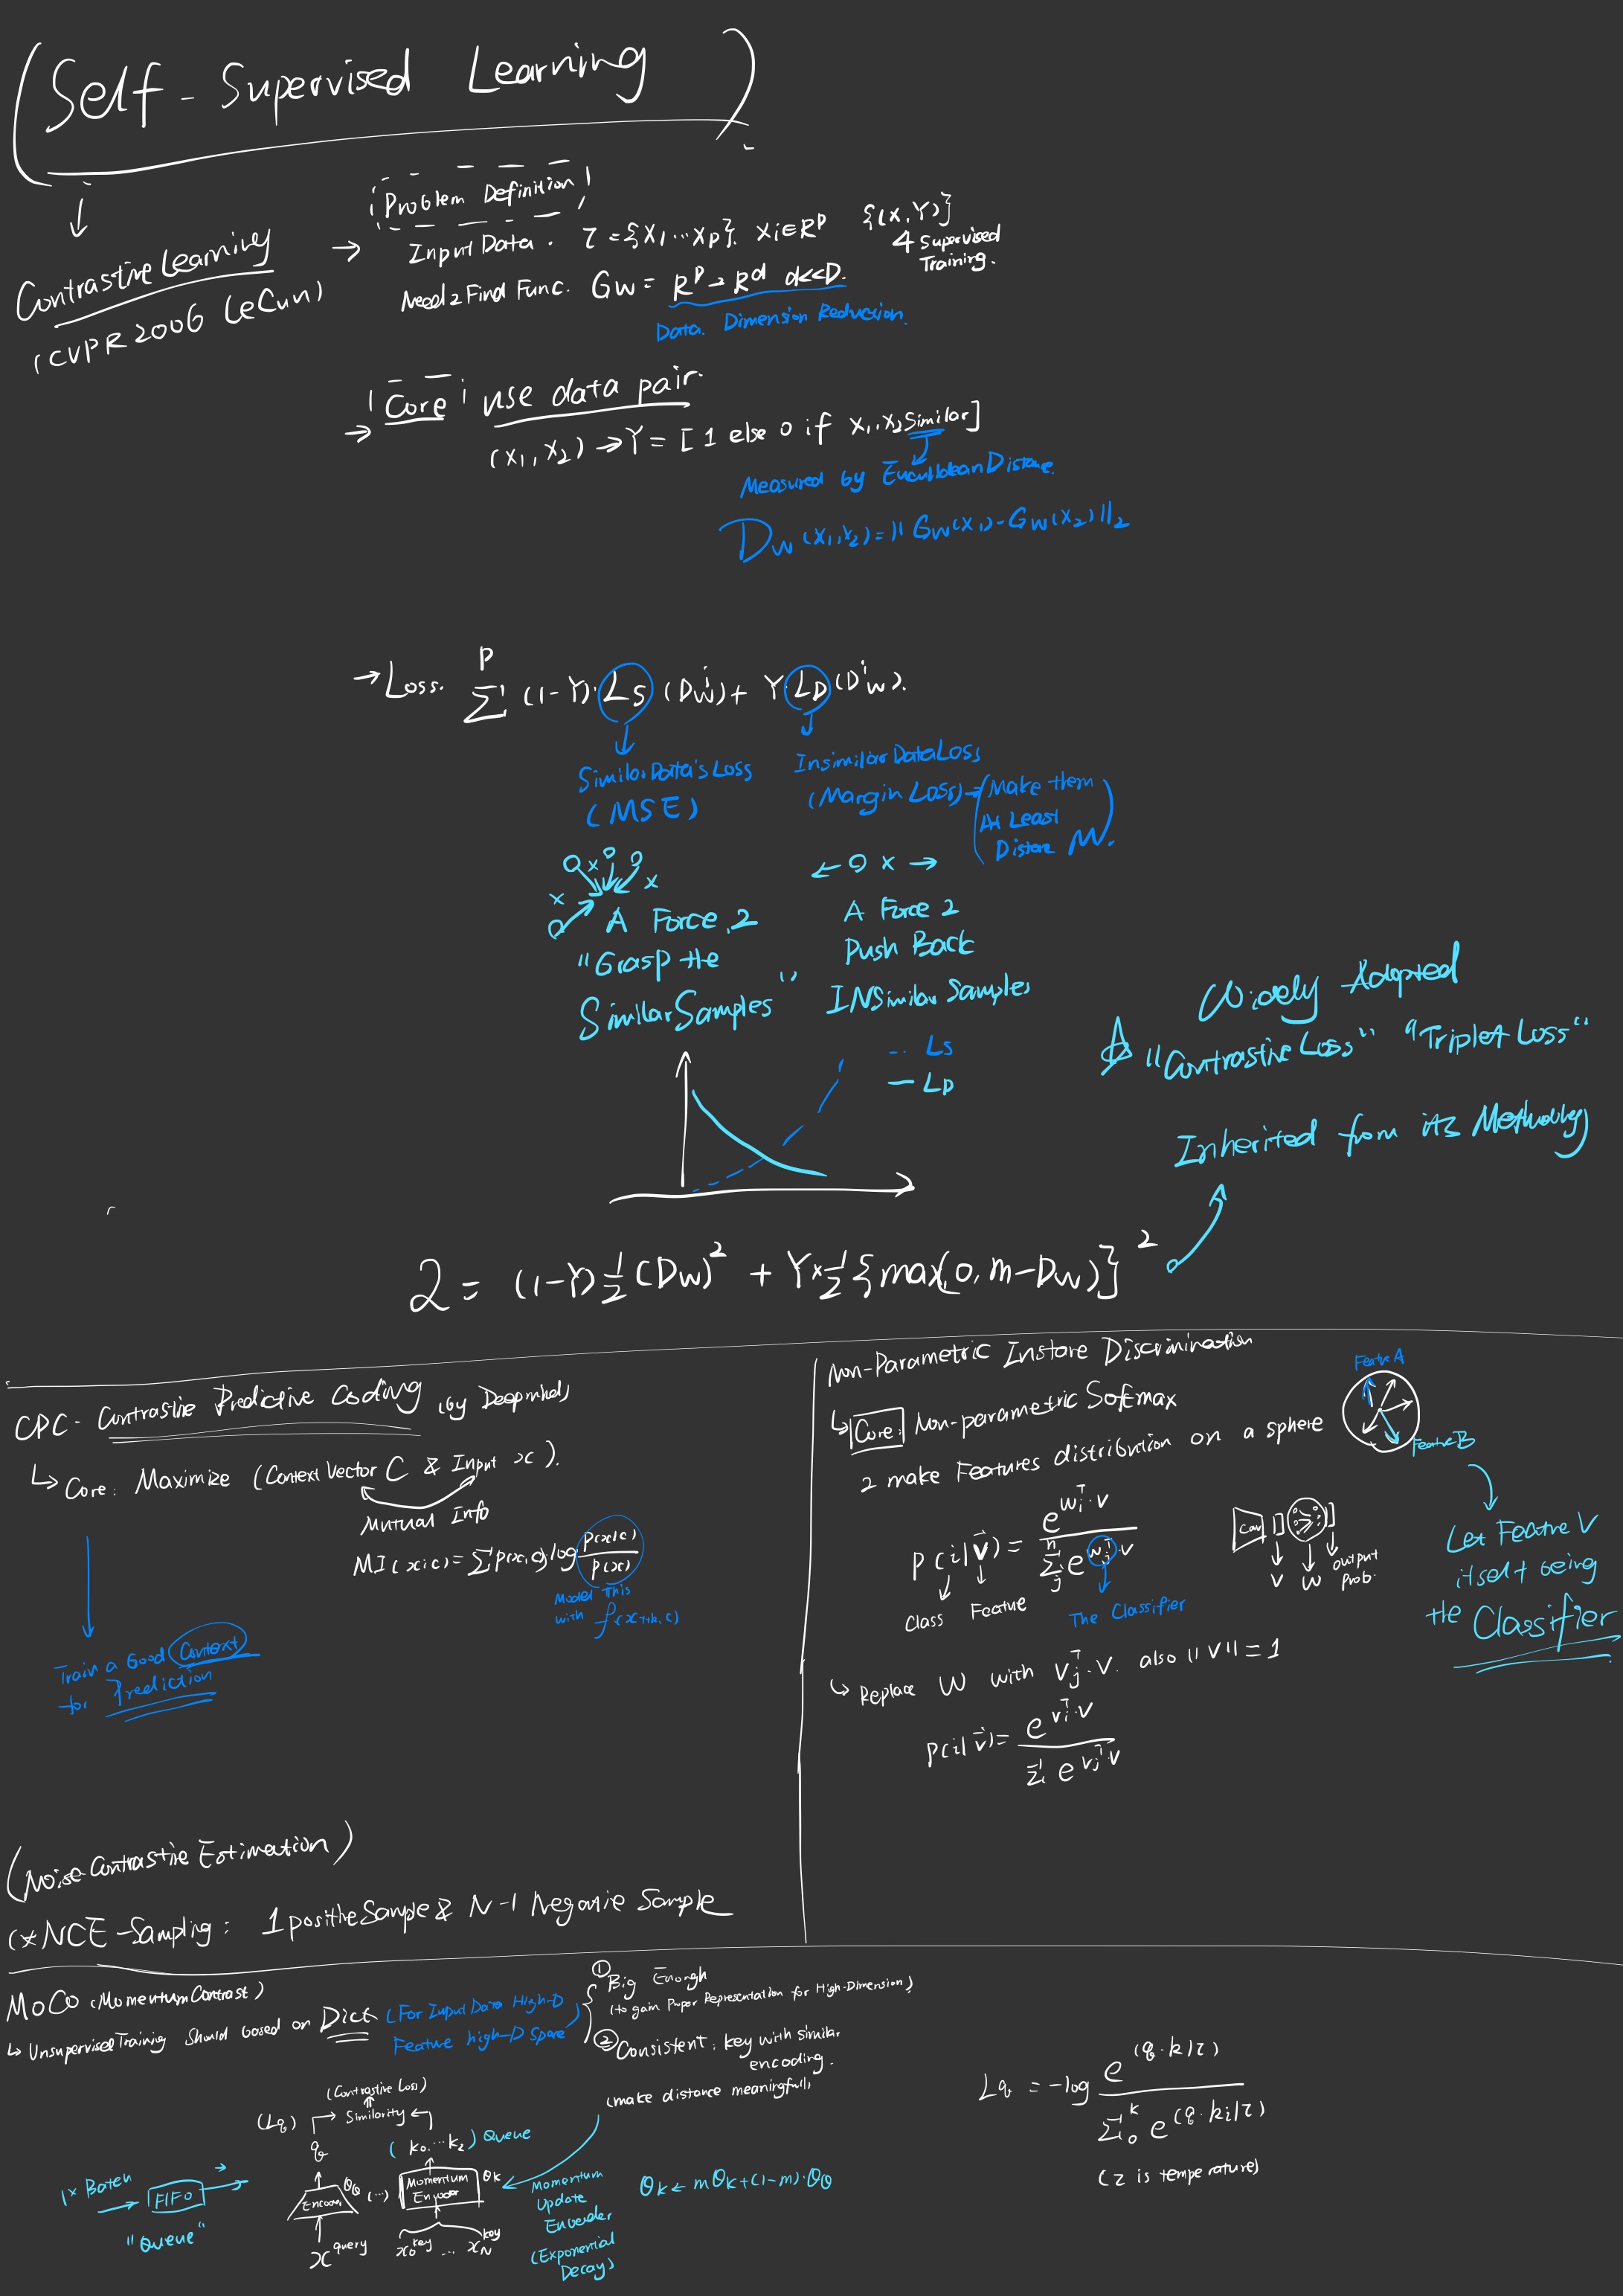 Self-Supervised Learning
Contrastive Learning
(CVPR 2006 LeCun)
Problem Definition
Input Data. τ = {X1 ... XP}. Xi ∈ R^D {(X, Y)}
4 Supervised
Training.
Need 2 Find Func. GW = R^D → R^d d<<D.
Data. Dimension Reduction.
Core use data pair.
(X1, X2) → Y = [1 else 0 if X1, X2 Similar]
Measured by Distance.
DW (X1, X2) = || GW(X1) - GW(X2) ||2
→ Loss. Σ^P (1-Y)·LS (DW^i) + Y·LD (D^iW).
Similar Data's Loss
(MSE)
Insimilar Data Loss
(Margin Loss) → (Make them
At Least
M.
A Force 2
"Grasp the
Similar Samples"
A Force 2
Push Back
INSimilar Samples
-- LS
— LD
Widely Adopted
"Contrastive Loss" "Triplet Loss"
Inherited from its
L = (1-Y) 1/2 (DW)^2 + Y × 1/2 {max(0, m-DW)}^2
CPC - Contrastive Predictive Coding (by Deepmind)
↳ Core: Maximize (Context Vector C & Input x).
Mutual Info
MI(x; c) = Σ p(x, c) log p(x|c) / p(x)
Model This
with f(xT+k, c)
Train a Good Context
for Prediction
(Noise Contrastive Estimation)
(* NCE-Sampling: 1 positive Sample & N-1 Negative Sample
Non-Parametric Instance Discrimination
↳ Core: Non-parametric Softmax
2 make Features distribution on a sphere
Feature A
Feature B
P(i|v) = e^(wi^T·v) / Σj^n e^(wj^T·v)
Class Feature The Classifier
Conv
V W output
prob.
Let Feature V
itself being
the Classifier
↳ Replace W with Vj^T·V. also ||V|| = 1
P(i|v) = e^(vi^T·v) / Σ e^(vj^T·v)
MoCo (Momentum Contrast)
↳ Unsupervised Training Should based on Dict (For Input Data High-D
Feature high-D Space)
① Big Enough
(to gain Proper Representation for High-Dimension)
② Consistent: key with similar
encoding.
(make distance meaningful)
(Contrastive Loss)
(Lq) → Similarity ←
q (k0, ... k2) Queue
1× Batch → FIFO →
"Queue"
Encoder θQ (...) Momentum Encoder θk
x^query x0^key ... xN^key
Momentum
Update
Encoder
(Exponential
Decay)
θk ← mθk + (1-m)·θQ
Lq = -log e^(q·k/τ) / Σ0^k e^(q·ki/τ)
(τ is temperature)